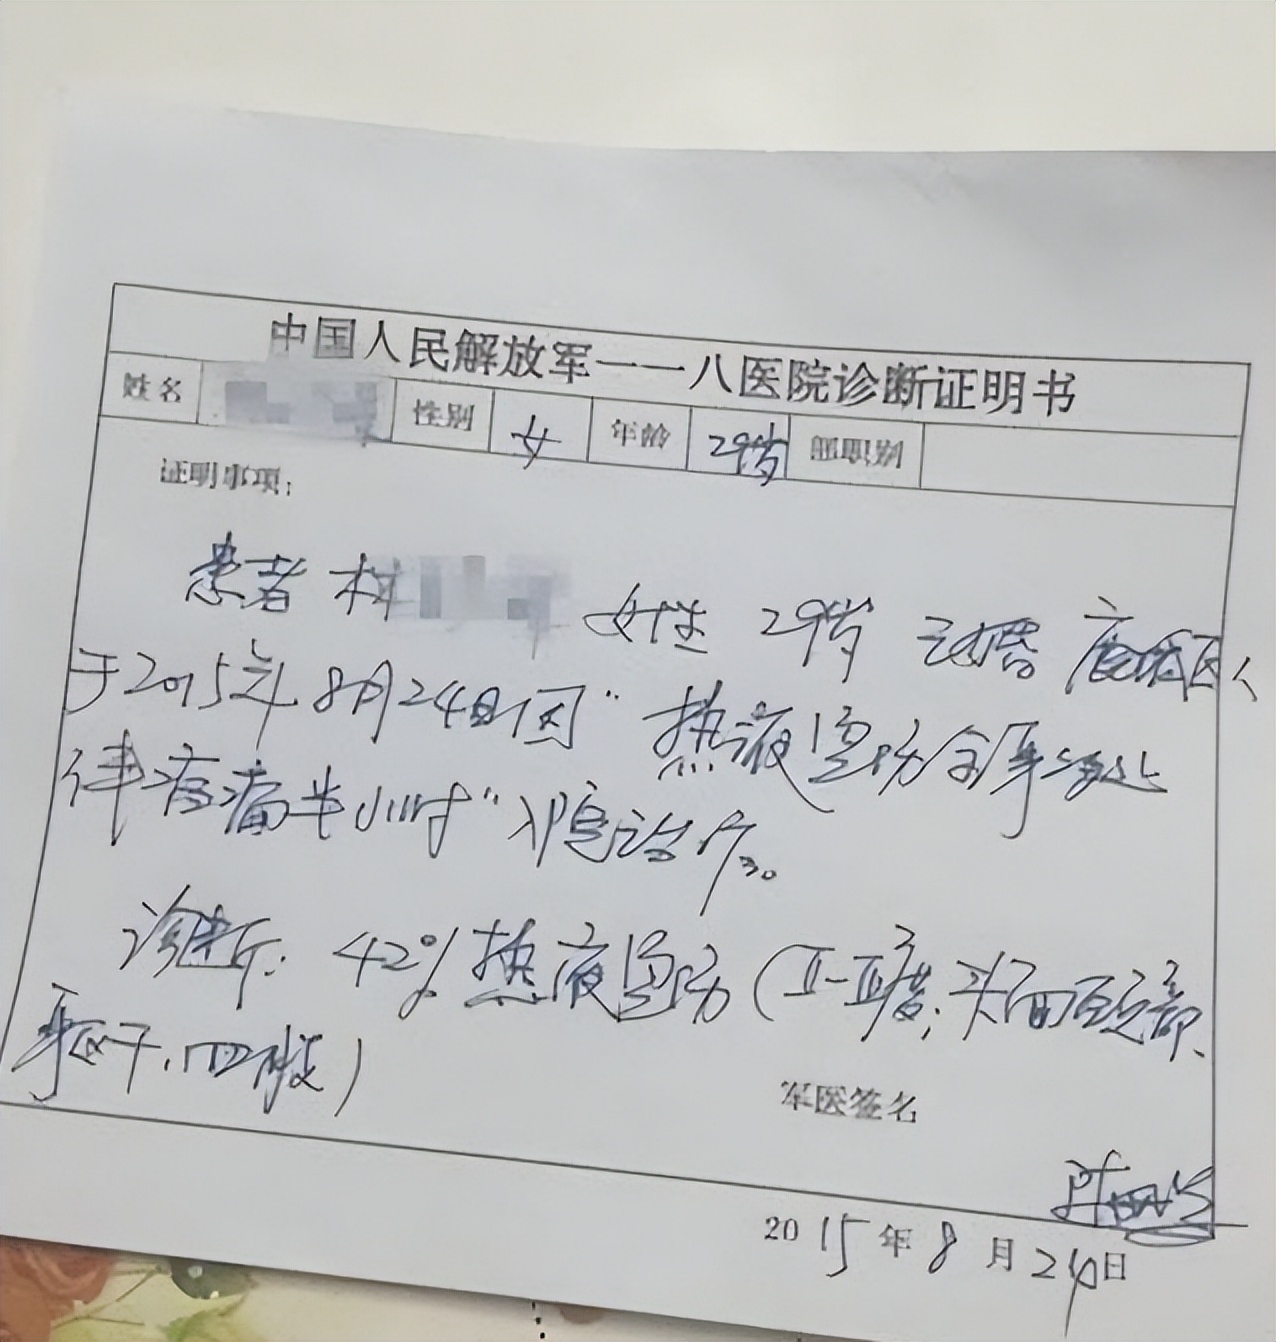 中国人民解放军一一八医院诊断证明书
姓名 性别 女 年龄 29岁 部职别
证明事项：
患者 林 女性 29岁 已婚 鹿城区人
于2015年8月24日因"热液烫伤全身多处
伴疼痛半小时"入院治疗。
诊断：42%热液烫伤（II-III度；头面颈部、
躯干、四肢）
军医签名
2015年8月24日